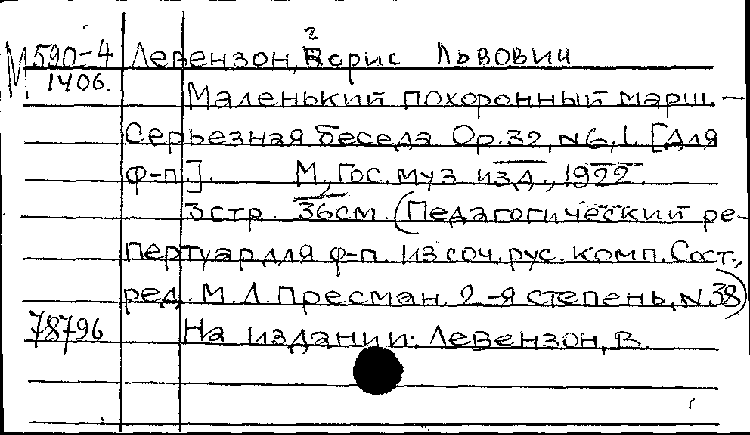 М 590-4 Левензон, Борис Львович
1406. Маленький похоронный марш. —
Серьезная беседа Ор.32, №6, 1. [Для
ф-п.]. М., Гос. муз. изд., 1922.
3 стр. 36 см. (Педагогический ре-
пертуар для ф-п. Из соч. рус. комп. Сост.,
ред. М. Л. Пресман. 2-я степень, N. 38)
78796 На издании: Левензон, В.